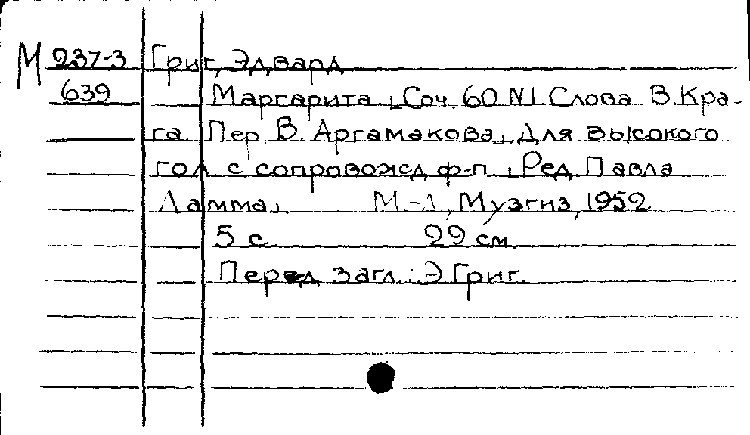 М 237-3 Григ, Эдвард
639 Маргарита, Соч. 60 N1. Слова В. Кра-
га. Пер. В. Аргамакова, Для высокого
гол. с сопровожд. ф-п., Ред. Павла
Ламма,   М.-Л., Музгиз, 1952
5 с.   29 см.
Перед загл.: Э. Григ.